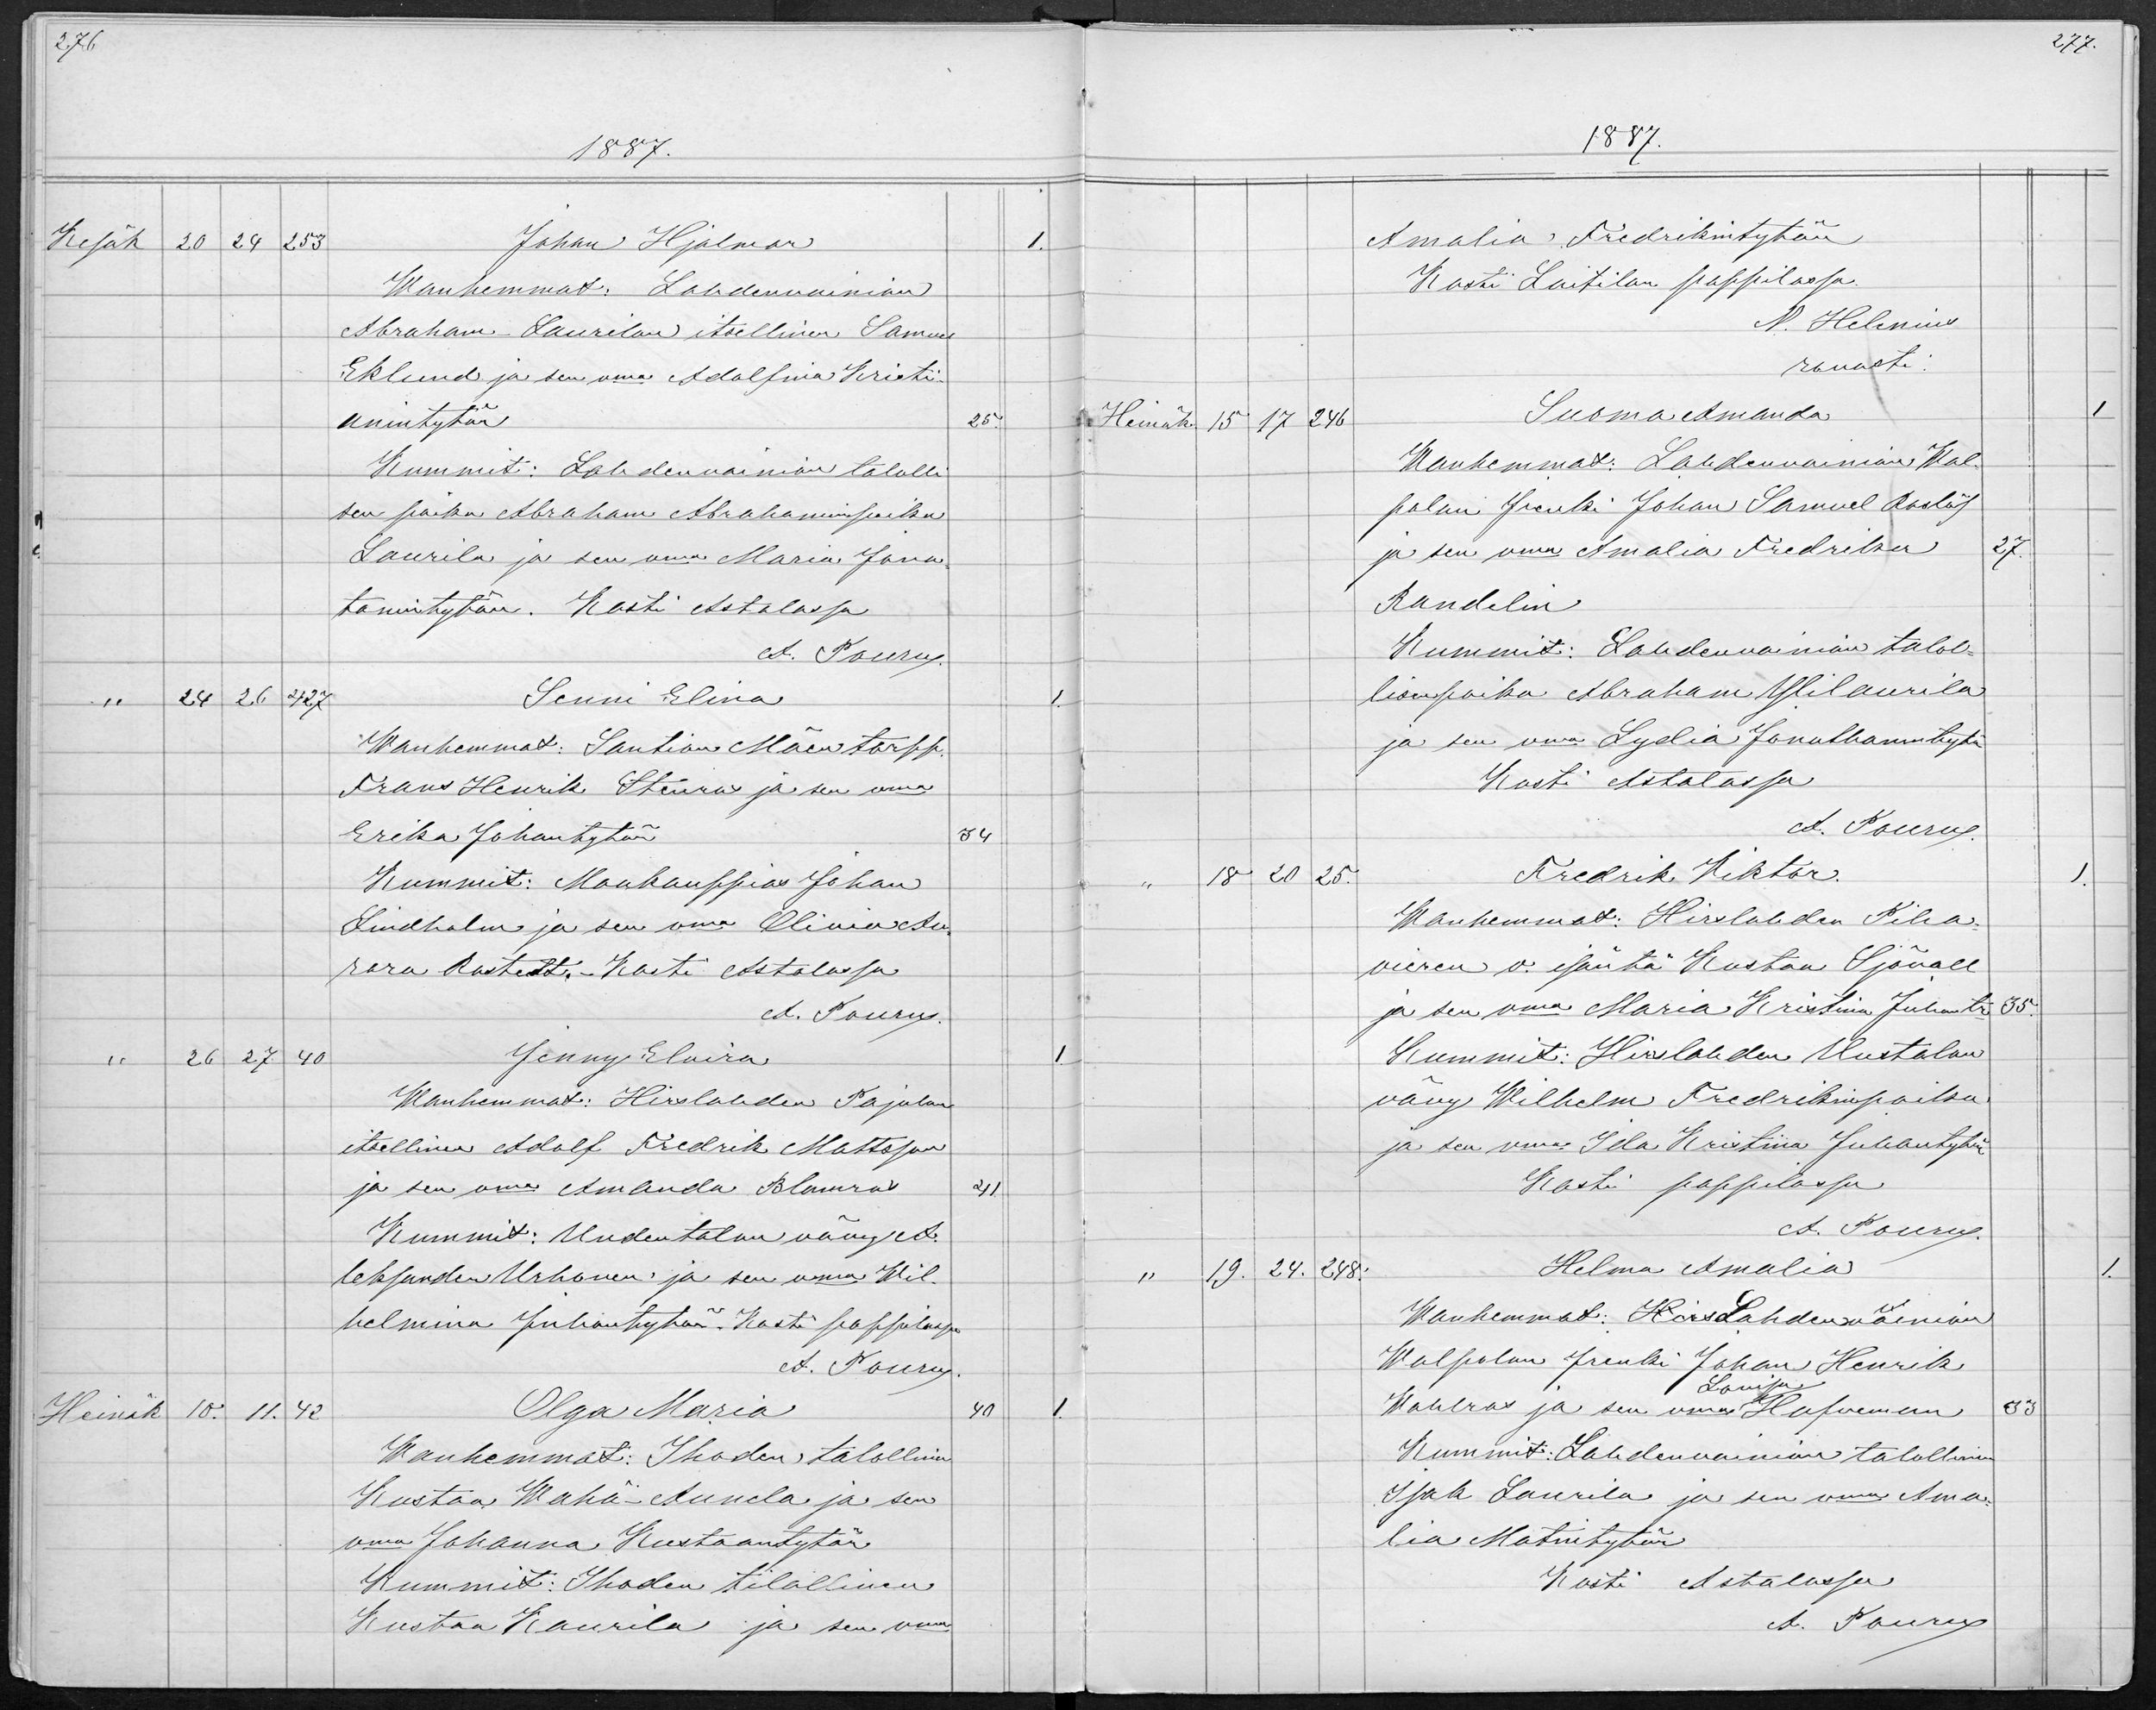 276
1887.
Kesäk 20 24 253 Johan Hjalmar 1.
Wanhemmat: Lahdenvainion
Abraham-Laurilan itsellinen Samuel
Eklund ja sen vmo Adolfina Kristi-
anintytär 25.
Kummit: Lahdenvainion talolli
sen poika Abraham Abrahaminpoika
Laurila ja sen vmo Maria Jona-
tanintytär. Kasti Astalassa
A. Pourus.
" 24 26 427 Senni Elina 1.
Wanhemmat: Santion Mäen torpp.
Frans Henrik Stenros ja sen vmo
Erika Johantytär 34
Kummit: Maakauppias Johan
Lindholm ja sen vmo Olivia Au-
rora Rostedt. - Kasti Astalassa
A. Pourus.
" 26 27 40 Jenny Elvira 1.
Wanhemmat: Hirslahden Pajulan
itsellinen Adolf Fredrik Mattsson
ja sen vmo Amanda Blomros 41
Kummit: Uudentalon vävy A-
leksander Urhonen ja sen vmo Wil-
helmina Juhantytär. Kasti pappilassa
A. Pourus.
Heinäk 10. 11. 42 Olga Maria 40 1.
Wanhemmat: Ihoden talollinen
Kustaa Wähä-Aunela ja sen
vmo Johanna Kustaantytär
Kummit: Ihoden tilallinen
Kustaa Kaurila ja sen vmo
277.
1887.
Amalia Fredrikintytär
Kasti Laitilan pappilassa.
N. Helenius
rovasti.
Heinäk 15 17 246 Suoma Amanda 1
Wanhemmat: Lahdenvainion Wal-
polan Johan Samuel Roslöf
ja sen vmo Amalia Fredrika 27.
Randelin
Kummit: Lahdenvainion talol-
lisenpoika Abraham Ylilaurila
ja sen vmo Lydia Jonathanintytär
Kasti Astalassa
A. Pourus.
" 18 20 25. Fredrik Viktor. 1.
Wanhemmat: Hirslahden Piha-
vieren v. isäntä Kustaa Sjövall
ja sen vmo Maria Kristina Juhantr 35.
Kummit: Hirslahden Uustalon
vävy Wilhelm Fredrikinpoika
ja sen vmo Ida Kristina Juhantytär
Kasti pappilassa
A. Pourus.
" 19. 24. 248. Helma Amalia 1.
Wanhemmat: Hirs Lahdenvainion
Walpolan Johan Henrik
Lovisa
Wahlros ja sen vmo Hafveman 33
Kummit: Lahdenvainion talollinen
Isak Laurila ja sen vmo Ama-
lia Matintytär
Kasti Astalassa
A. Pourus